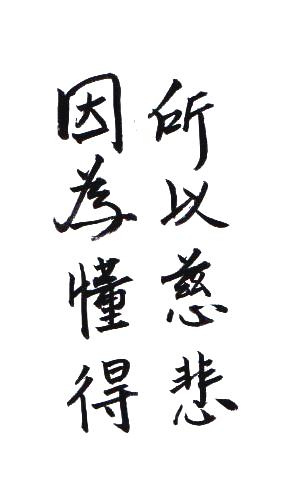 因為懂得
所以慈悲